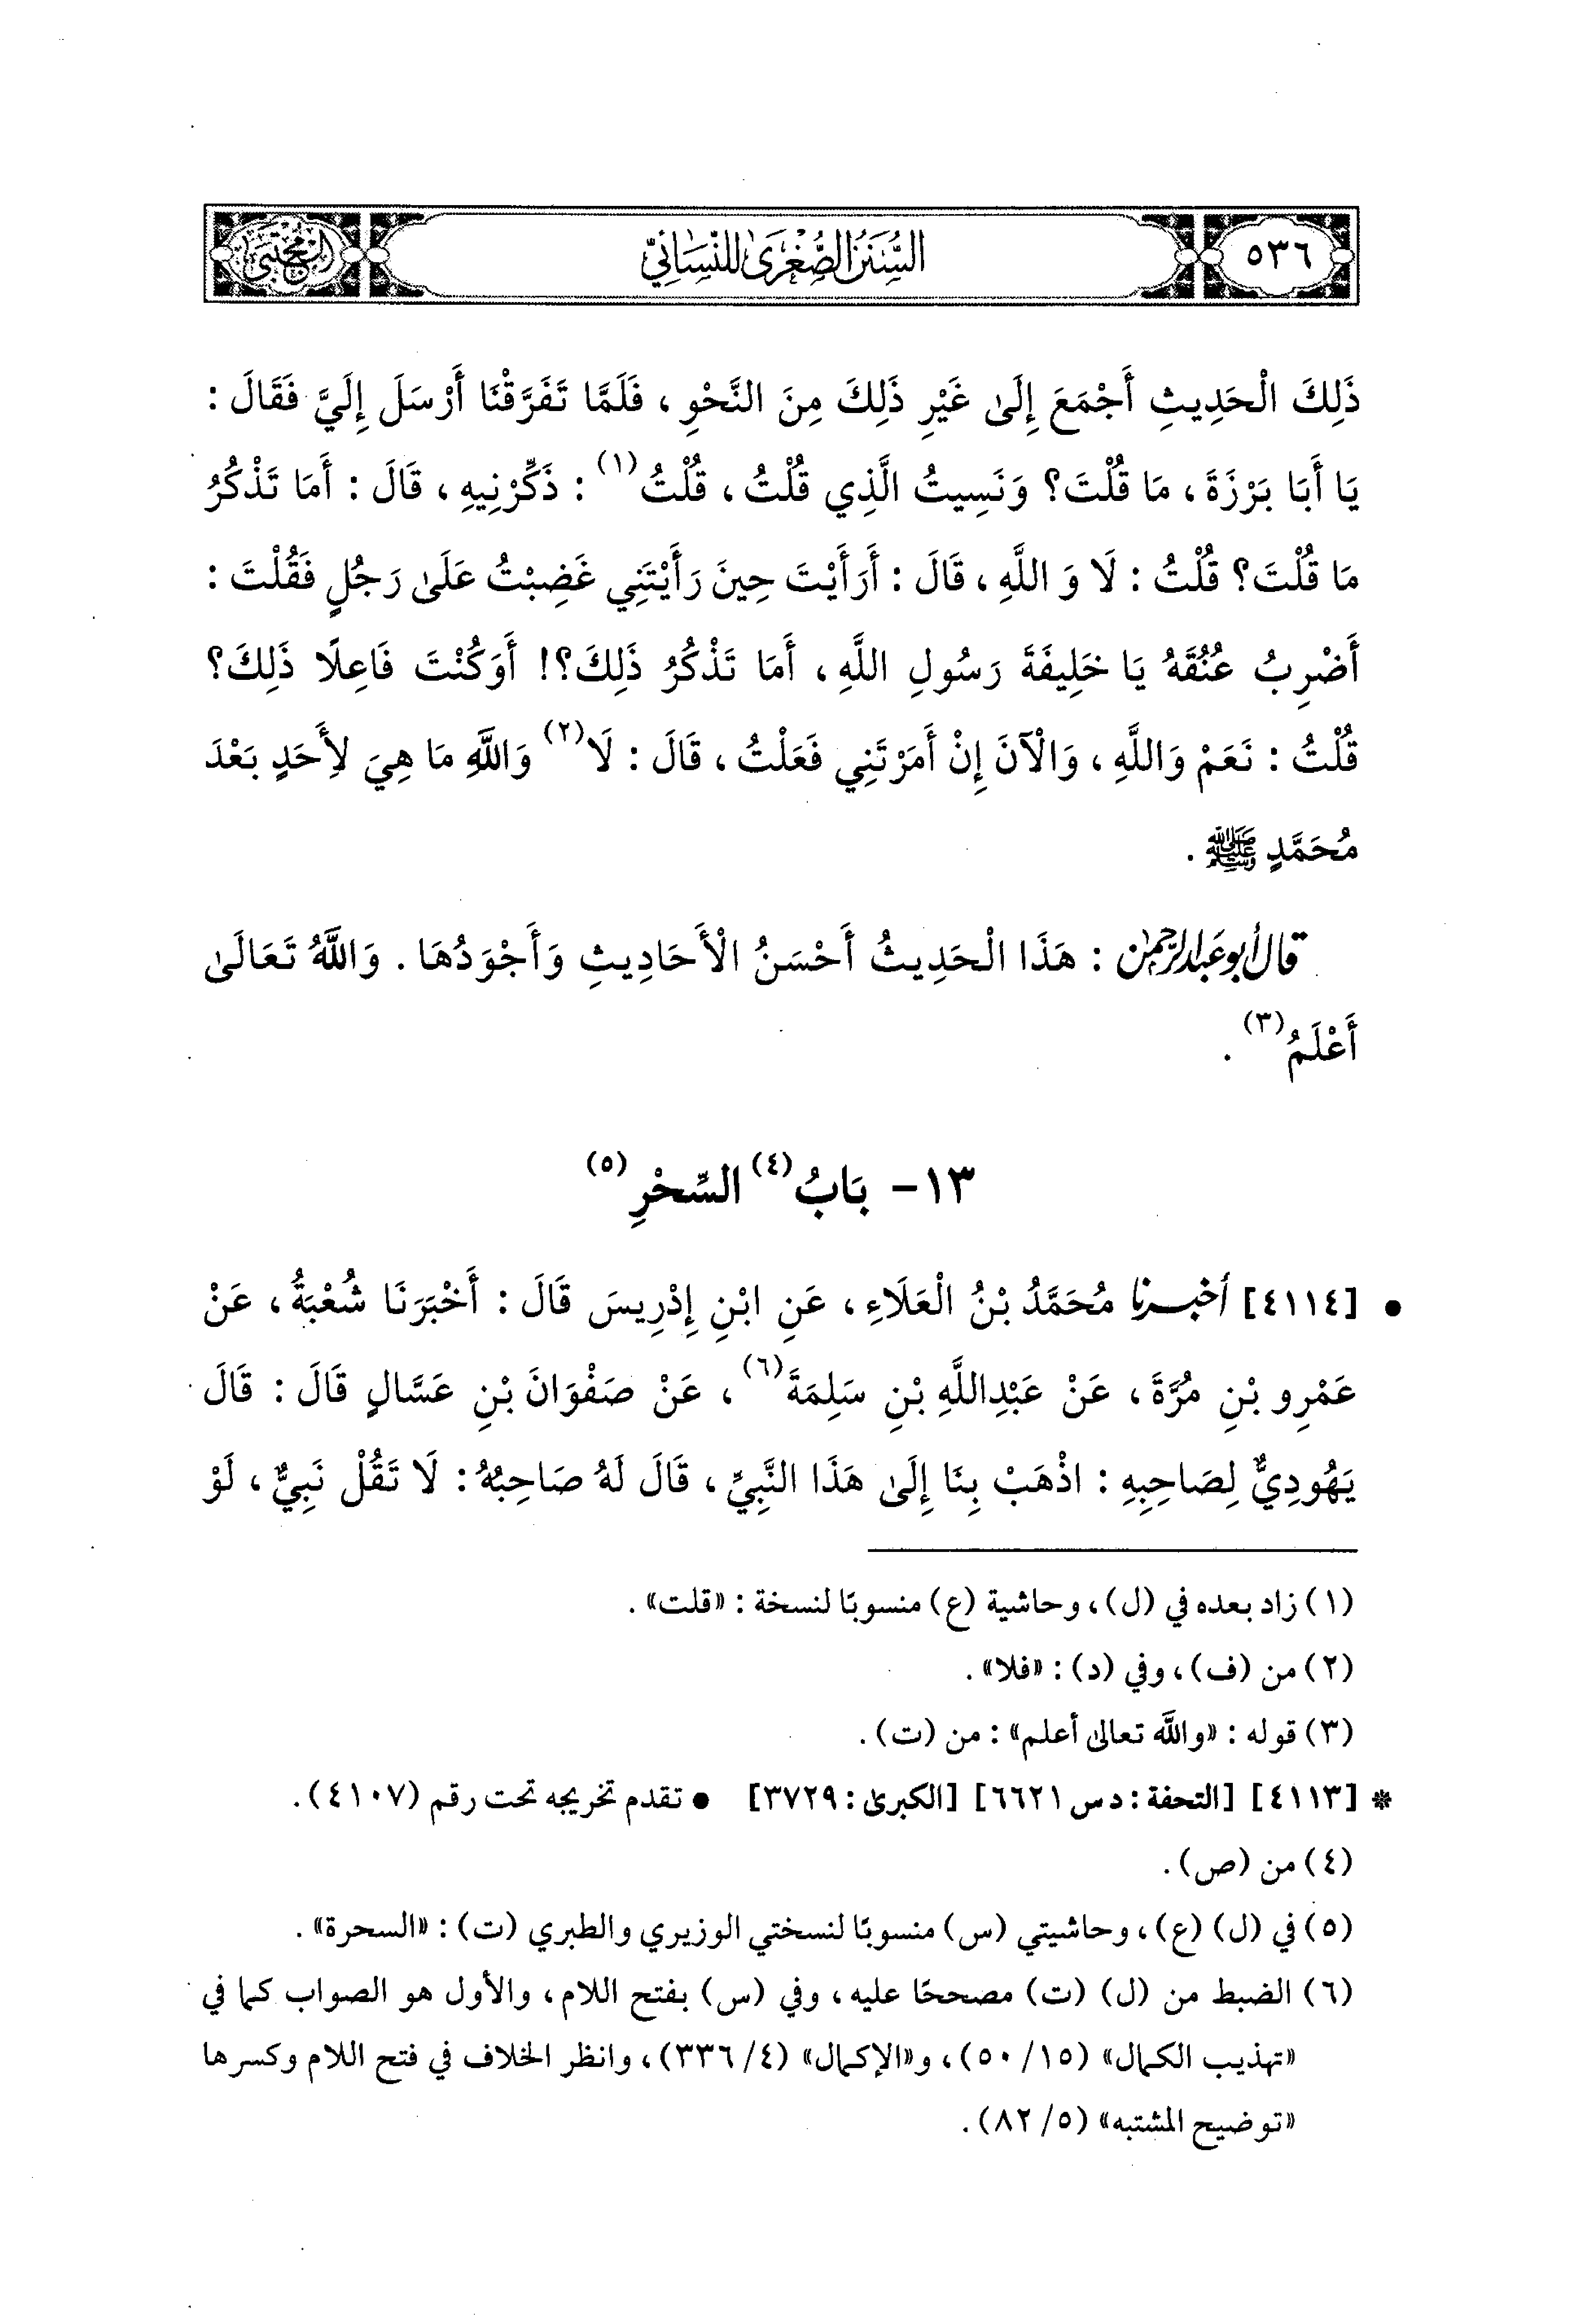 ٥٣٦
السُّنَنُ الصُّغْرَىٰ لِلنَّسَائِيِّ
المجتبى
ذَلِكَ الْحَدِيثِ أَجْمَعَ إِلَىٰ غَيْرِ ذَلِكَ مِنَ النَّحْوِ، فَلَمَّا تَفَرَّقْنَا أَرْسَلَ إِلَيَّ فَقَالَ :
يَا أَبَا بَرْزَةَ، مَا قُلْتَ؟ وَنَسِيتُ الَّذِي قُلْتُ، قُلْتُ(١) : ذَكِّرْنِيهِ، قَالَ : أَمَا تَذْكُرُ
مَا قُلْتَ؟ قُلْتُ : لَا وَ اللَّهِ، قَالَ : أَرَأَيْتَ حِينَ رَأَيْتَنِي غَضِبْتُ عَلَىٰ رَجُلٍ فَقُلْتَ :
أَضْرِبُ عُنُقَهُ يَا خَلِيفَةَ رَسُولِ اللَّهِ، أَمَا تَذْكُرُ ذَلِكَ؟! أَوَكُنْتَ فَاعِلًا ذَلِكَ؟
قُلْتُ : نَعَمْ وَاللَّهِ، وَالْآنَ إِنْ أَمَرْتَنِي فَعَلْتُ، قَالَ : لَا(٢) وَاللَّهِ مَا هِيَ لِأَحَدٍ بَعْدَ
مُحَمَّدٍ ﷺ .
قال أبو عبد الرحمٰن : هَذَا الْحَدِيثُ أَحْسَنُ الْأَحَادِيثِ وَأَجْوَدُهَا . وَاللَّهُ تَعَالَىٰ
أَعْلَمُ(٣) .
١٣- بَابُ(٤) السِّحْرِ(٥)
• [٤١١٤] أخبرنا مُحَمَّدُ بْنُ الْعَلَاءِ، عَنِ ابْنِ إِدْرِيسَ قَالَ : أَخْبَرَنَا شُعْبَةُ، عَنْ
عَمْرِو بْنِ مُرَّةَ، عَنْ عَبْدِاللَّهِ بْنِ سَلِمَةَ(٦)، عَنْ صَفْوَانَ بْنِ عَسَّالٍ قَالَ : قَالَ
يَهُودِيٌّ لِصَاحِبِهِ : اذْهَبْ بِنَا إِلَىٰ هَذَا النَّبِيِّ، قَالَ لَهُ صَاحِبُهُ : لَا تَقُلْ نَبِيٌّ، لَوْ
(١) زاد بعده في (ل)، وحاشية (ع) منسوبًا لنسخة : «قلت» .
(٢) من (ف)، وفي (د) : «فلا» .
(٣) قوله : «واللَّه تعالىٰ أعلم» : من (ت) .
* [٤١١٣] [التحفة : د س ٦٦٢١] [الكبرىٰ : ٣٧٢٩] • تقدم تخريجه تحت رقم (٤١٠٧) .
(٤) من (ص) .
(٥) في (ل) (ع)، وحاشيتي (س) منسوبًا لنسختي الوزيري والطبري (ت) : «السحرة» .
(٦) الضبط من (ل) (ت) مصححًا عليه، وفي (س) بفتح اللام، والأول هو الصواب كما في
«تهذيب الكمال» (١٥/ ٥٠)، و«الإكمال» (٤/ ٣٣٦)، وانظر الخلاف في فتح اللام وكسرها
«توضيح المشتبه» (٥/ ٨٢) .